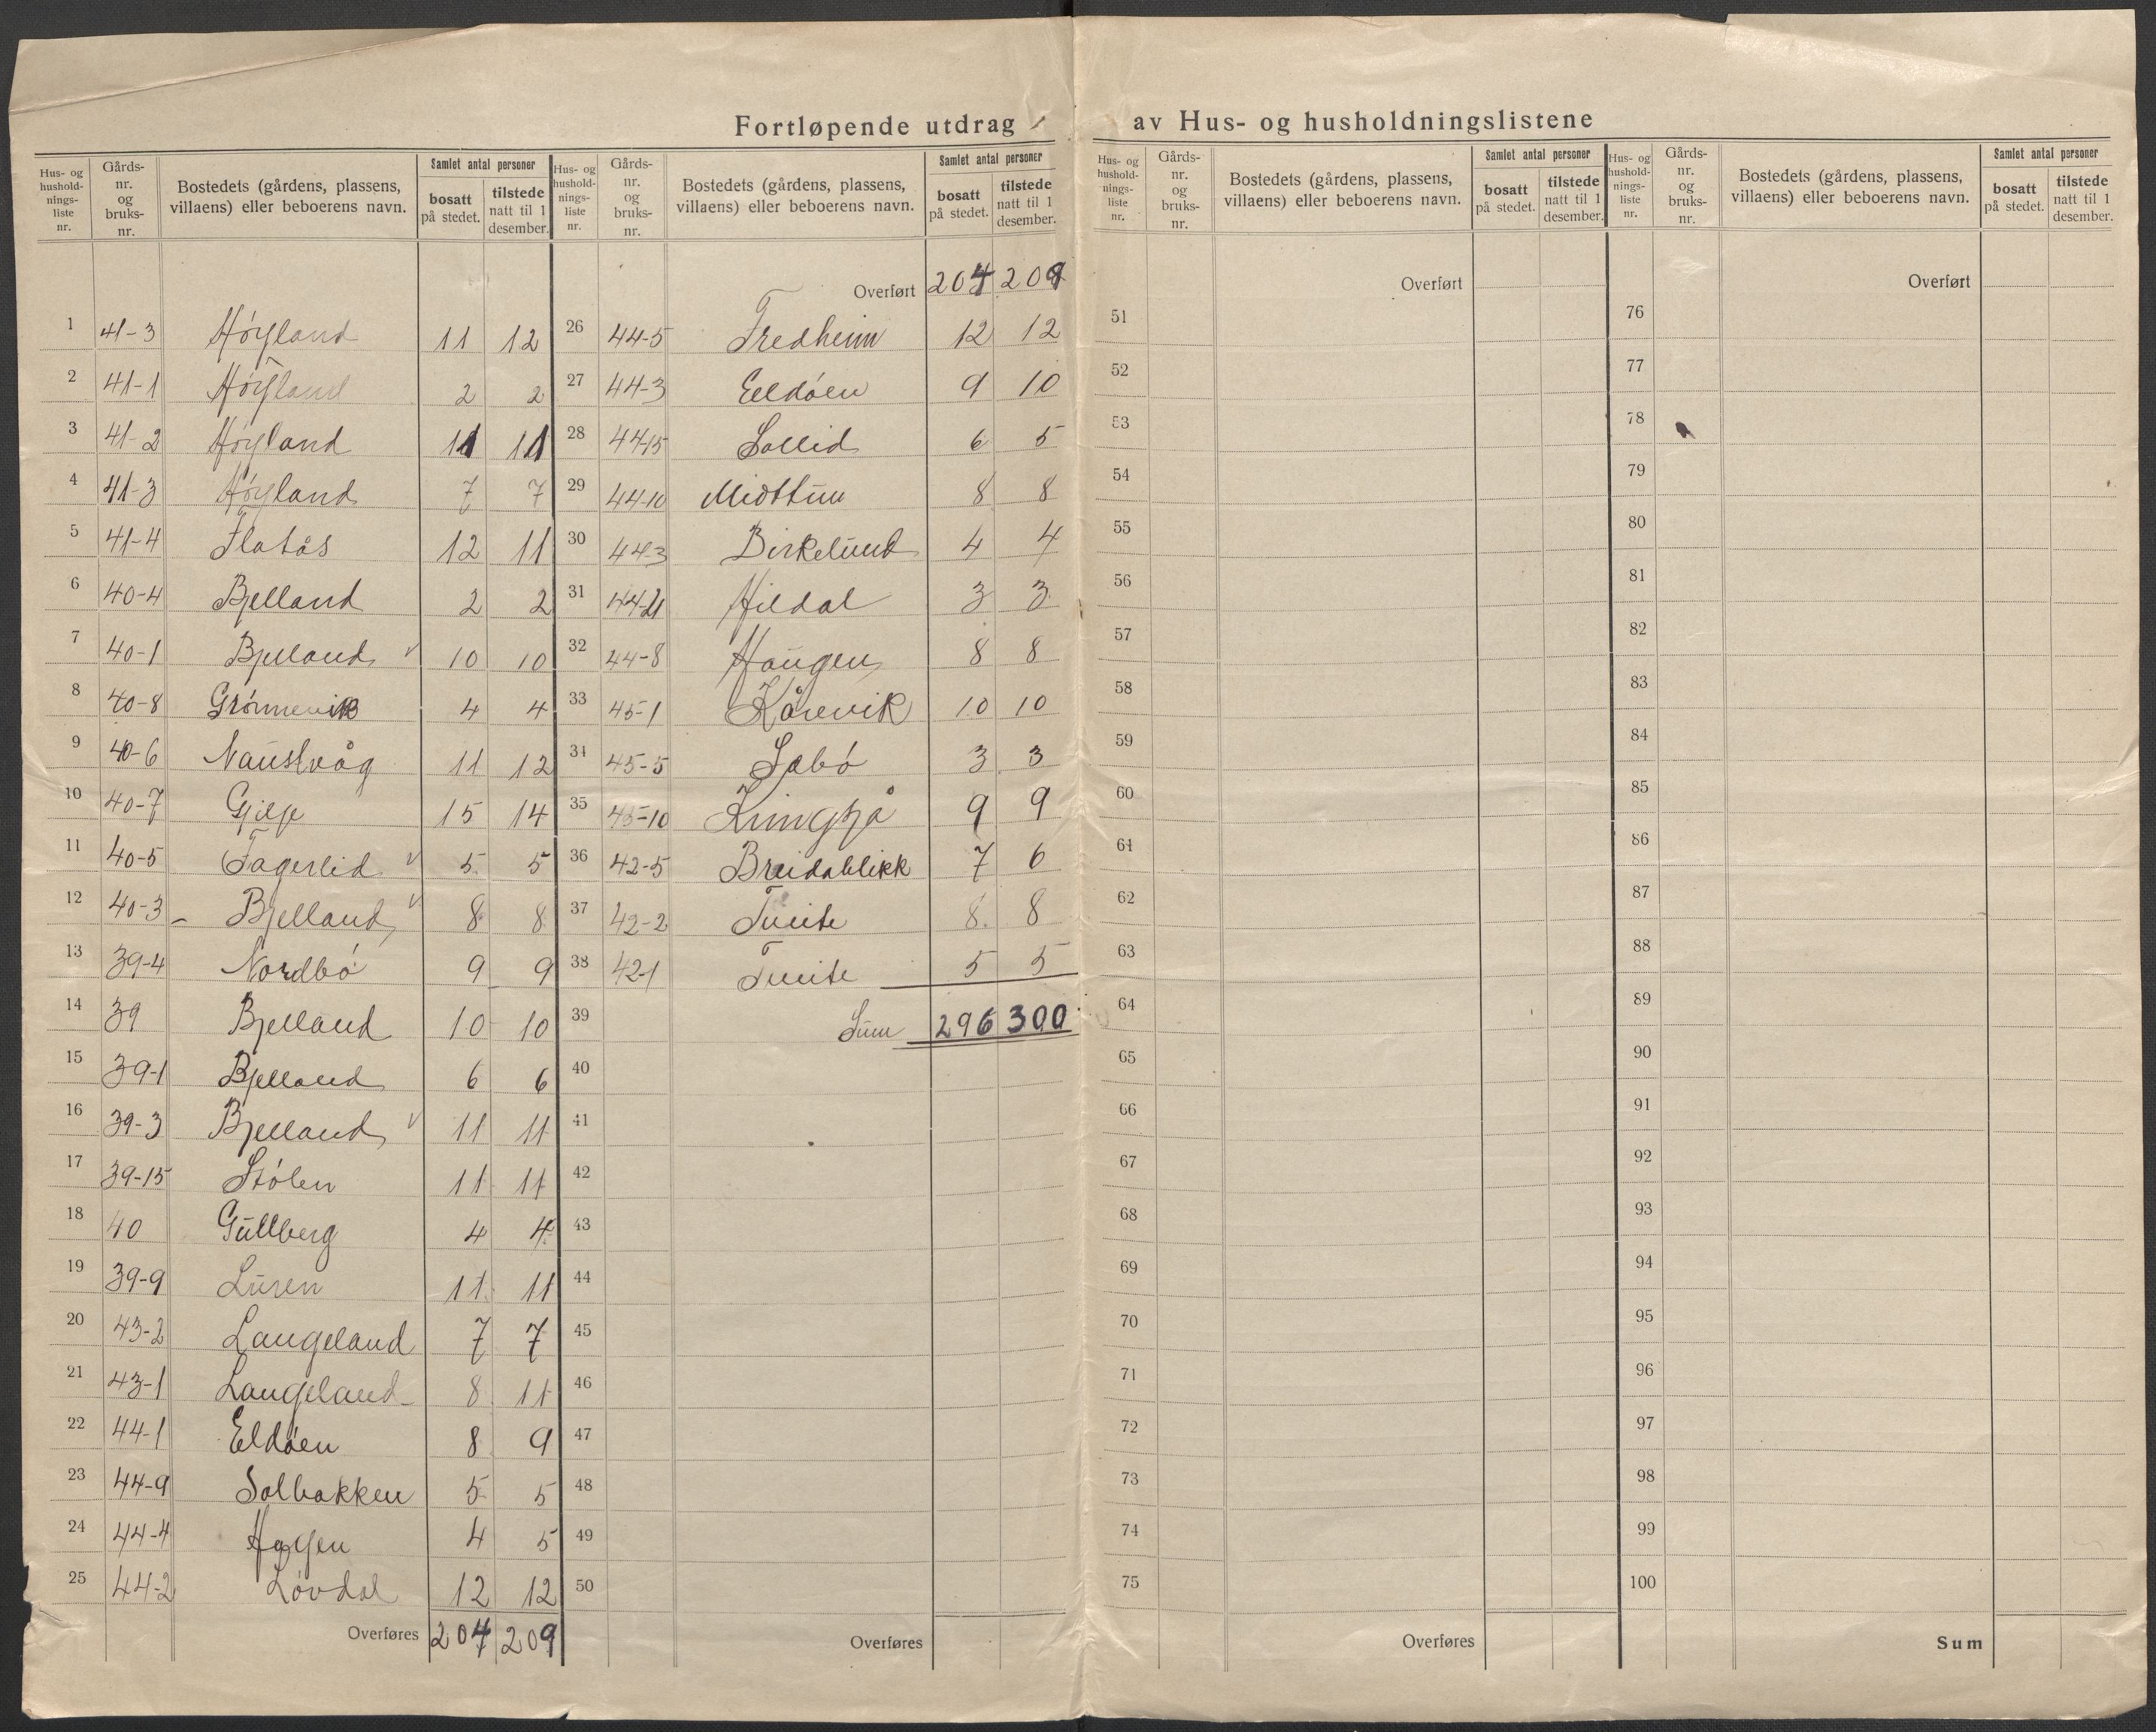 Fortløpende utdrag av Hus- og husholdningslistene
Hus- og hushold-nings-liste nr. | Gårds-nr. og bruks-nr. | Bostedets (gårdens, plassens, villaens) eller beboerens navn. | Samlet antal personer | bosatt på stedet. | tilstede natt til 1 desember.
1 41-3 Høyland 11 12
2 41-1 Høyland 2 2
3 41-2 Høyland 11 11
4 41-3 Høyland 7 7
5 41-4 Flatås 12 11
6 40-4 Bjelland 2 2
7 40-1 Bjelland v 10 10
8 40-8 Grønnevik 4 4
9 40-6 Naustvåg 11 12
10 40-7 Gilje 15 14
11 40-5 Fagerlid v 5 5
12 40-3 Bjelland v 8 8
13 39-4 Nordbø 9 9
14 39 Bjelland 10 10
15 39-1 Bjelland 6 6
16 39-3 Bjelland v 11 11
17 39-15 Stølen 11 11
18 40 Gullberg 4 4
19 39-9 Luren 11 11
20 43-2 Langeland 7 7
21 43-1 Langeland 8 11
22 44-1 Eldøen 8 9
23 44-9 Solbakken 5 5
24 44-4 Hagen 4 5
25 44-2 Løvdal 12 12
Overføres 204 209
Hus- og hushold-nings-liste nr. | Gårds-nr. og bruks-nr. | Bostedets (gårdens, plassens, villaens) eller beboerens navn. | Samlet antal personer | bosatt på stedet. | tilstede natt til 1 desember.
Overført 204 209
26 44-5 Fredheim 12 12
27 44-3 Eeldøen 9 10
28 44-15 Sollid 6 5
29 44-10 Midttun 8 8
30 44-3 Birkelund 4 4
31 44-21 Hildal 3 3
32 44-8 Haugen 8 8
33 45-1 Kårevik 10 10
34 45-5 Sæbø 3 3
35 45-10 9 9
36 42-5 Breidablikk 7 6
37 42-2 Tveite 8 8
38 42-1 Tveite 5 5
39 Sum 296 300
40
41
42
43
44
45
46
47
48
49
50
Overføres
Hus- og hushold-nings-liste nr. | Gårds-nr. og bruks-nr. | Bostedets (gårdens, plassens, villaens) eller beboerens navn. | Samlet antal personer | bosatt på stedet. | tilstede natt til 1 desember.
Overført
51
52
53
54
55
56
57
58
59
60
61
62
63
64
65
66
67
68
69
70
71
72
73
74
75
Overføres
Hus- og hushold-nings-liste nr. | Gårds-nr. og bruks-nr. | Bostedets (gårdens, plassens, villaens) eller beboerens navn. | Samlet antal personer | bosatt på stedet. | tilstede natt til 1 desember.
Overført
76
77
78
79
80
81
82
83
84
85
86
87
88
89
90
91
92
93
94
95
96
97
98
99
100
Sum